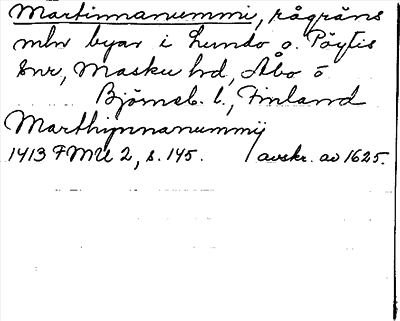 Martinnanummi, rågräns
mln byar i Lundo o. Pöytis
snr, Masku hd, Åbo o
Björneb. l., Finland
Marthijnnanummij
1413 FMU 2, s. 145. / avskr. av 1625.